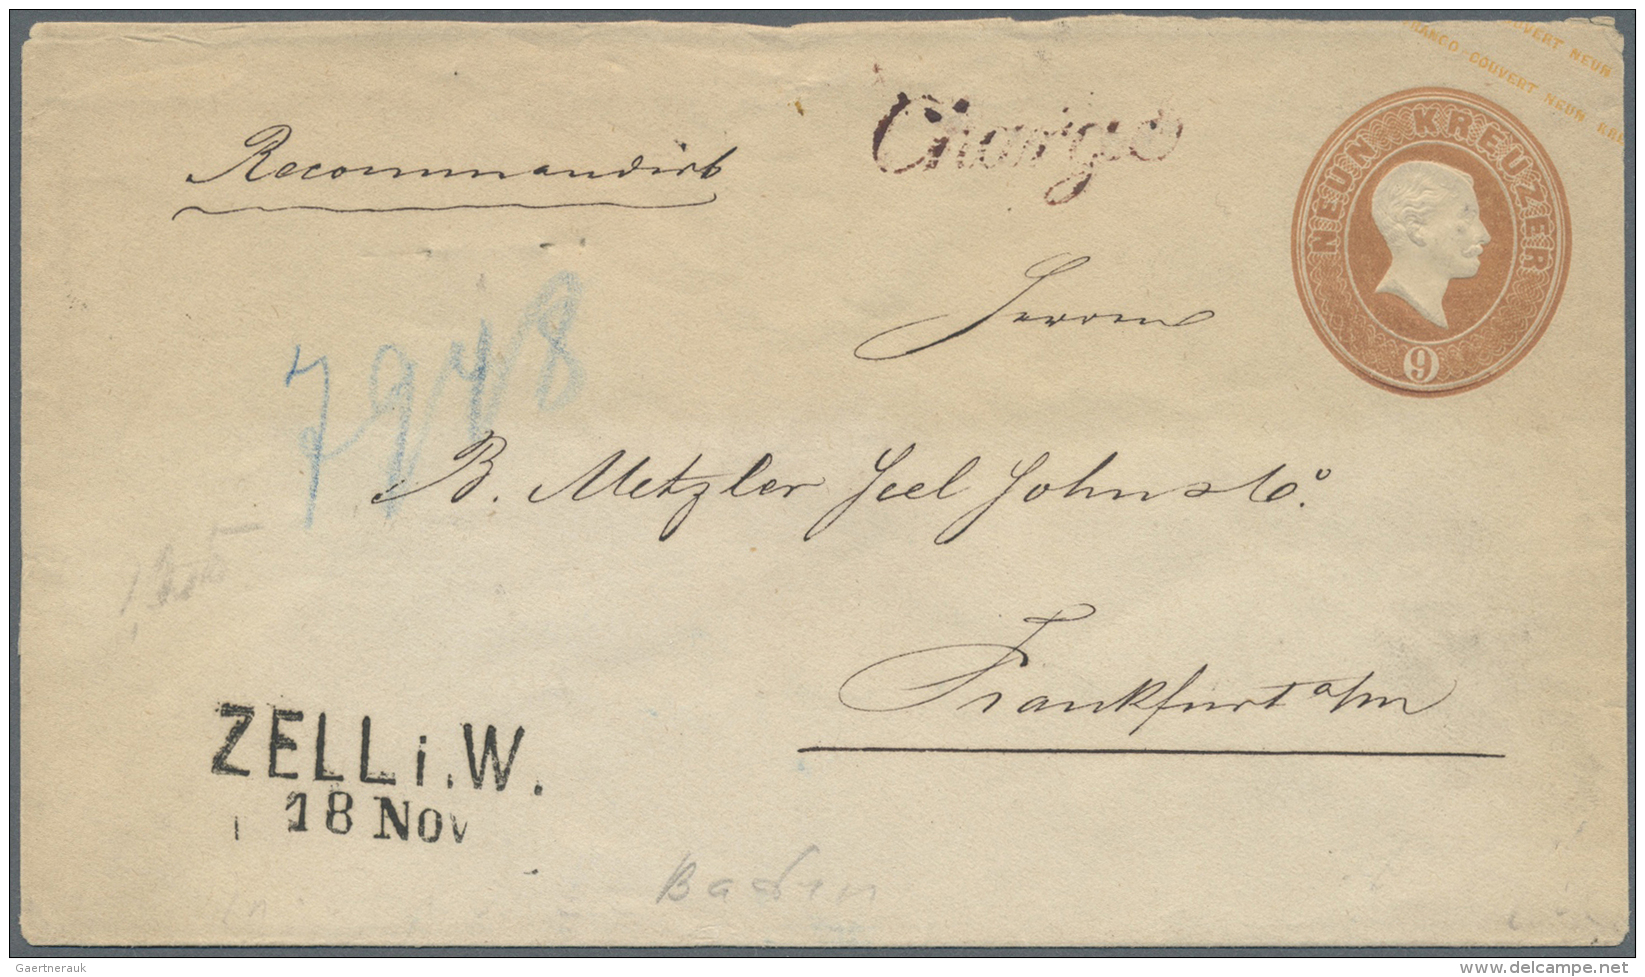 OUVERT NEUN
FRANCO COUVERT NEUN KRE
Chargé
Recommandirt
NEUN KREUZER
9
Herren
7948
B. Metzler Seel Sohn & Cº.
Frankfurt a/m
ZELL i. W.
18 Nov
Baden
Gaertnerauk
www.delcampe.net